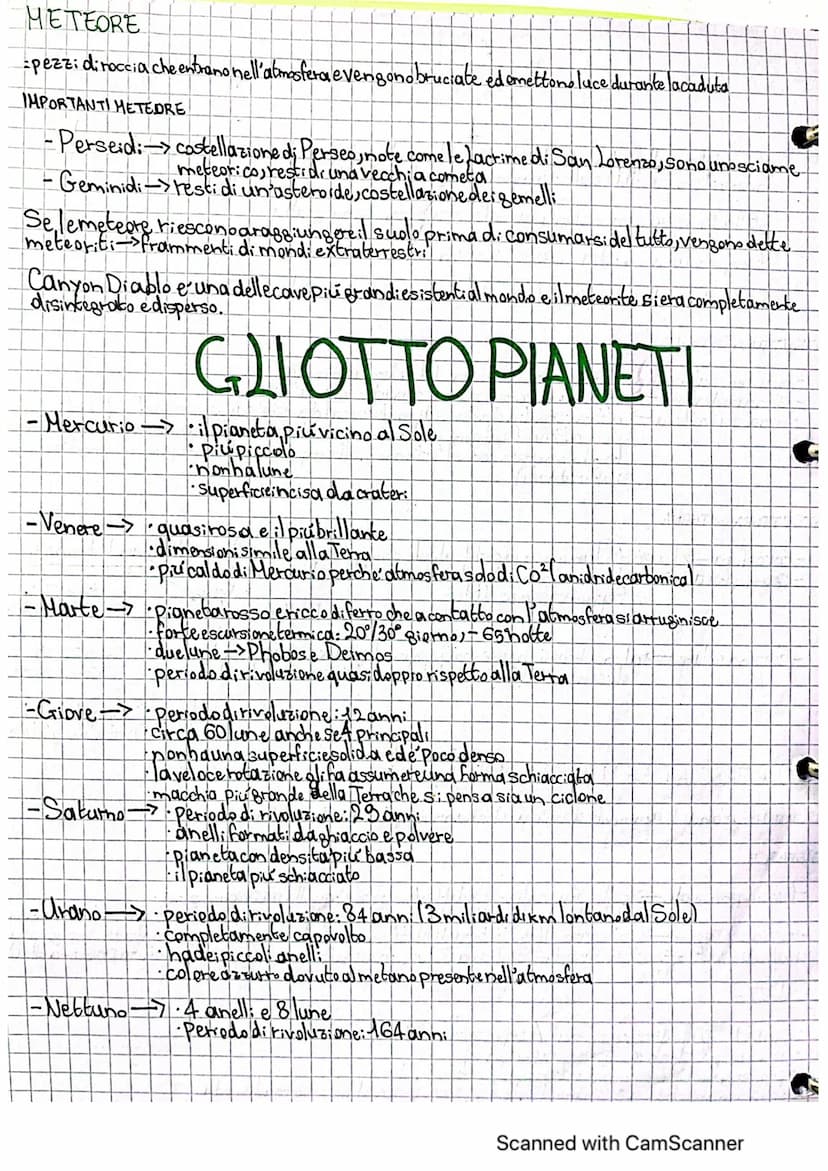 METEORE
=pezzi di roccia che entrano nell'atmosfera e vengono bruciate ed emettono luce durante la caduta
IMPORTANTI METEORE
- Perseidi → costellazione di Perseo, note come le lacrime di San Lorenzo, sono uno sciame
meteorico, resti di una vecchia cometa
- Geminidi → resti di un'asteroide, costellazione dei gemelli
Se le meteore riescono a raggiungere il suolo prima di consumarsi del tutto, vengono dette
meteoriti → frammenti di mondi extraterrestri
Canyon Diablo è una delle cave più grandi esistenti al mondo e il meteorite si era completamente
disintegrato e disperso.
GLI OTTO PIANETI
- Mercurio → · il pianeta più vicino al Sole
· più piccolo
· non ha lune
· superficie incisa da crateri
- Venere → · quasi rosa e il più brillante
· dimensioni simile alla Terra
· più caldo di Mercurio perché atmosfera solo di CO² (anidride carbonica)
- Marte → · pianeta rosso e ricco di ferro che a contatto con l'atmosfera si arruginisce
· forte escursione termica: 20°/30° giorno, -65 notte
· due lune → Phobos e Deimos
· periodo di rivoluzione quasi doppio rispetto alla Terra
- Giove → · periodo di rivoluzione: 12 anni
· circa 60 lune anche se 4 principali
· non ha una superficie solida ed é poco denso
· la veloce rotazione gli fa assumere una forma schiacciata
· macchia più grande della Terra che si pensa sia un ciclone
- Saturno → · periodo di rivoluzione: 29 anni
· anelli formati da ghiaccio e polvere
· pianeta con densità più bassa
· il pianeta più schiacciato
- Urano → · periodo di rivoluzione: 84 anni (3 miliardi di km lontano dal Sole)
· completamente capovolto
· ha dei piccoli anelli
· colore azzurro dovuto al metano presente nell'atmosfera
- Nettuno → · 4 anelli e 8 lune
· periodo di rivoluzione: 164 anni
Scanned with CamScanner